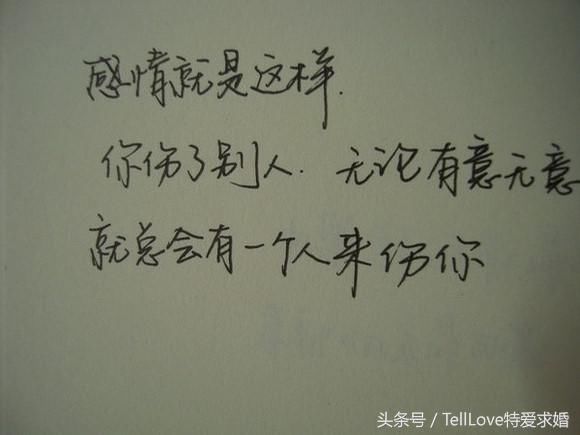 感情就是这样.
你伤了别人. 无论有意无意
就总会有一个人来伤你
头条号／TellLove特爱求婚